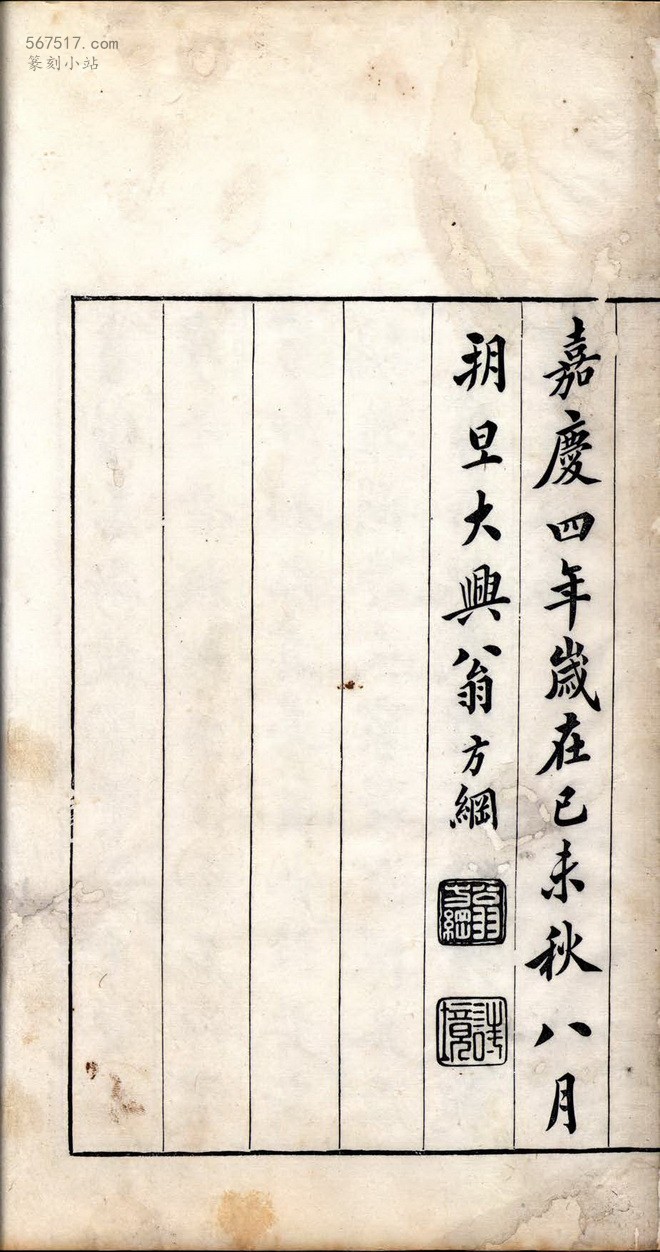 567517.com
篆刻小站
嘉慶四年歲在己未秋八月
朔旦大興翁方綱
翁方綱
詩境